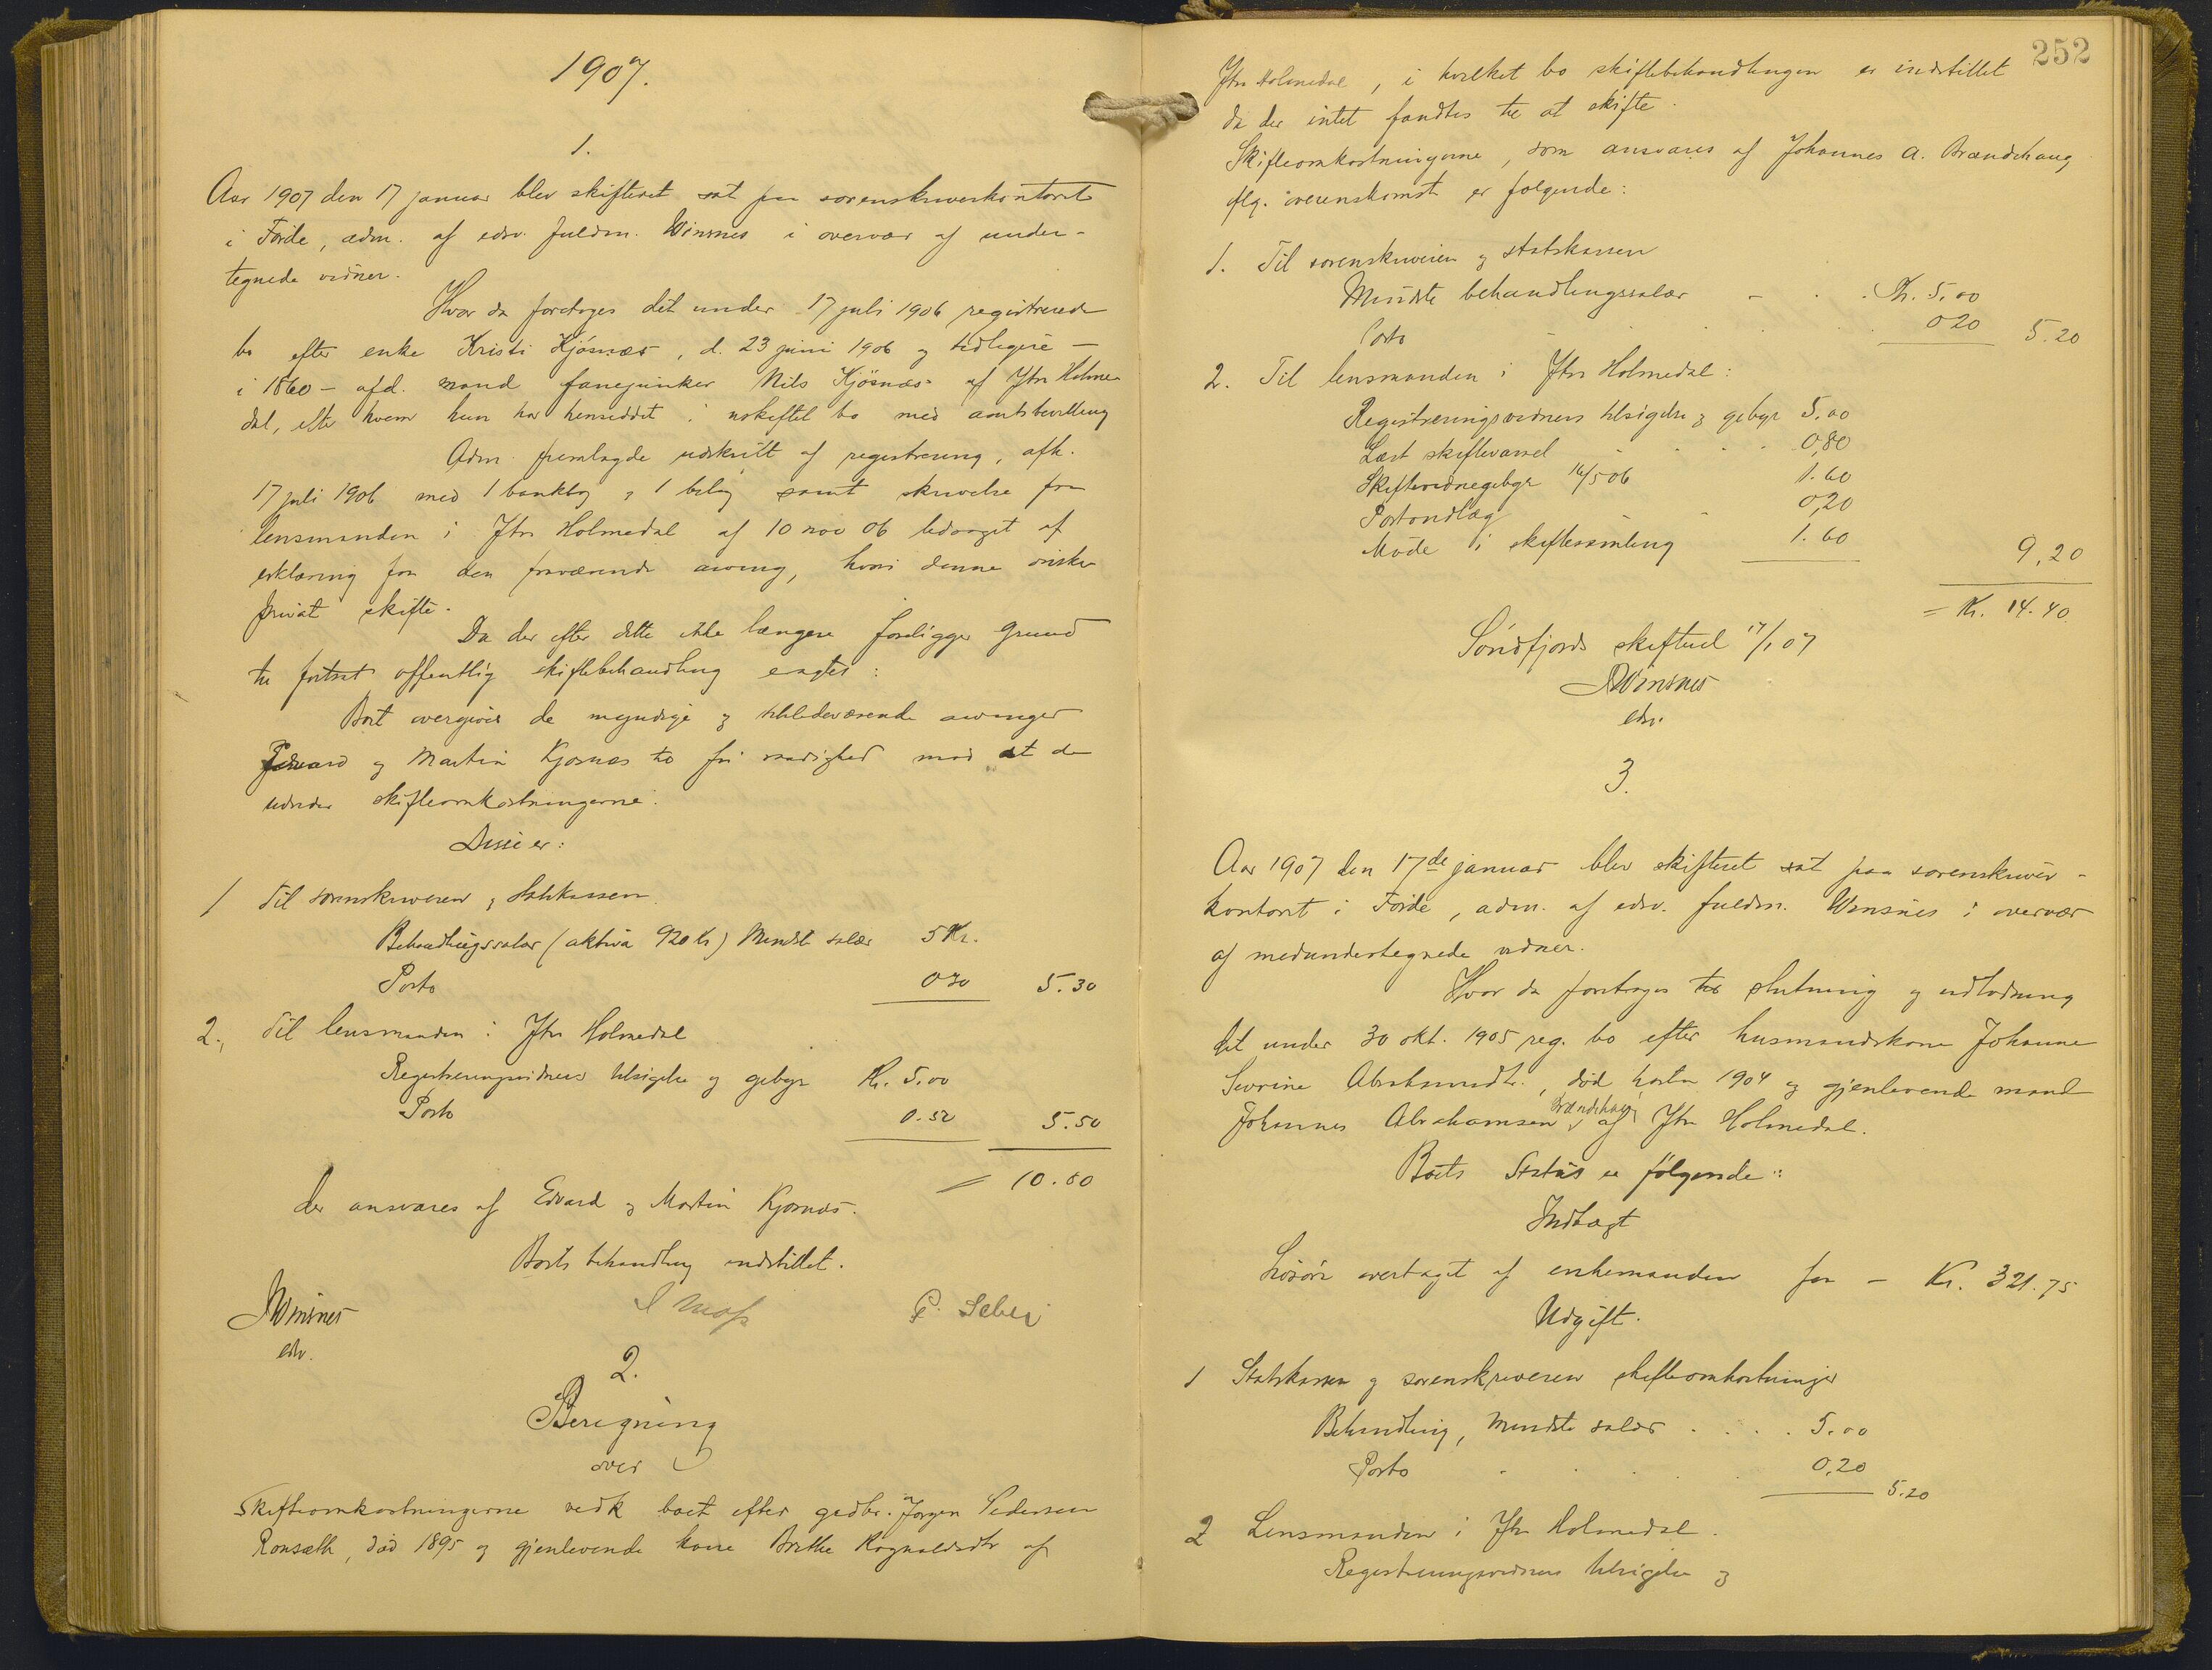 1907.
1.
Aar 1907 den 17 januar blev skifteret sat paa sorenskriverkontoret
i Førde, adm. af edsv. fuldm. Winsnes i overvær af under-
tegnede vidner.
Hvor da foretoges det under 17 juli 1906 registrerede
bo efter enke Kristi Kjösnæs, d. 23 juni 1906 og tidligere -
i 1860 - afd. mand fanejunker Nils Kjösnæs af Ytre Holme-
dal, efter hvem hun har hensiddet i uskiftet bo med amtsbevilling
Adm. fremlagde udskrift af registrering, afh.
17 juli 1906 med 1 bankbog, 1 bilag samt skrivelse fra
lensmanden i Ytre Holmedal af 10 nov 06 ledsaget af
erklæring fra den fraværende arving, hvori denne ønsker
privat skifte.
Da der efter dette ikke længere foreligger grund
til fortsat offentlig skiftebehandling eragtes:
Boet overgives de myndige og tilstedeværende arvinger
Edvard og Martin Kjosnæs til fri raadighed mod at de
udreder skifteomkostningerne.
Disse er:
1 Til sorenskriveren og Statskassen
Behandlingssalær (aktiva 920 Kr) Mindste salær 5 Kr.
Porto 0 30 5.30
2., Til lensmanden i Ytre Holmedal
Registreringsvidners tilsigelse og gebyr Kr. 5.00
Porto 0.50 5.50
= 10.80
der ansvares af Edvard og Martin Kjosnæs.
Boets behandling indstillet.
Winsnes
edsv.
2.
Beregning
over
Skifteomkostningerne vedk boet efter gadbr. Jørgen Pedersen
Ronsæth, død 1895 og gjenlevende kone Brithe Ragnaldsdtr af
252
Ytre Holmedal, i hvilket bo skiftebehandlingen er indstillet
da der intet fandtes til at skifte.
Skifteomkostningerne, som ansvares af Johannes A. Brændehaug
flg. overenskomst er følgende:
1. Til sorenskriveren og statskassen
Mindste behandlingssalær - . . Kr. 5,00
Porto 0 20 5.20
2. Til lensmanden i Ytre Holmedal:
Registreringsvidners tilsigelse og gebyr 5,00
Læst skiftevarsel 0,80
Skiftevidnegebyr 16/5 06 1.60
Portoudlæg 0,20
Møde i skiftesamling 1.60
9,20
= Kr. 14.40
Söndfjords skifteret 17/1 07
Winsnes
edsv.
3.
Aar 1907 den 17de januar blev skifteret sat paa sorenskriver-
kontoret i Førde, adm. af edsv. fuldm. Winsnes i overvær
af medundertegnede vidner.
Hvor da foretoges til slutning og udlodning
det under 30 okt. 1905 reg. bo efter husmandskone Johanne
Severine Abrahamsdtr., død høsten 1904 og gjenlevende mand
Johannes Abrahamsen Brændehaug af Ytre Holmedal.
Boets Status er følgende:
Indtægt
Lösöre overtaget af enkemanden for - Kr. 321.75
Udgift.
1 Statskassen og sorenskriveren skifteomkostninger
Behandling, mindste salær . . . . 5.00
Porto 0,20
5.20
2 Lensmanden i Ytre Holmedal.
Registreringsvidners tilsigelse og